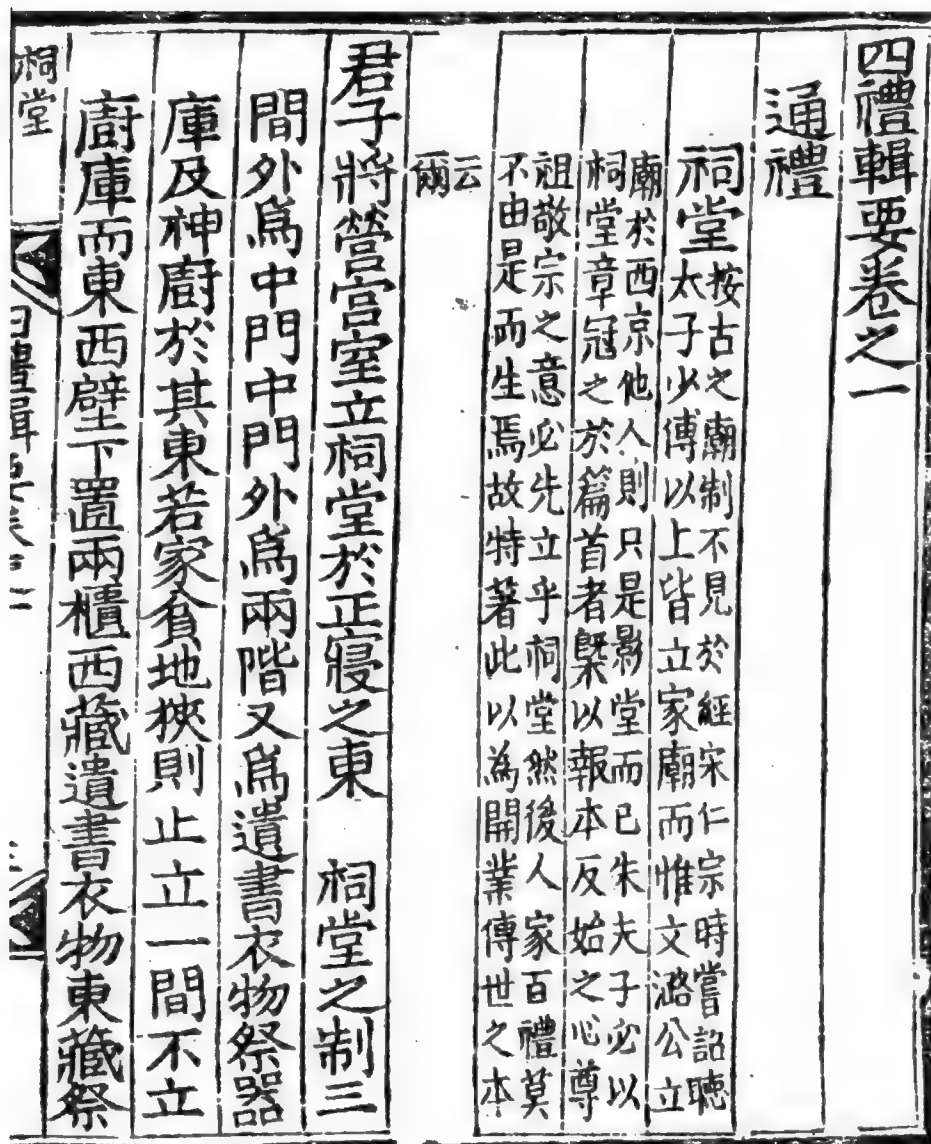 四禮輯要卷之一
通禮
祠堂
按古之廟制不見於經宋仁宗時嘗詔聽
太子少傅以上皆立家廟而惟文潞公立
廟於西京他人則只是影堂而已朱夫子必以
祠堂章冠之於篇首者槩以報本反始之心尊
祖敬宗之意必先立乎祠堂然後人家百禮莫
不由是而生焉故特著此以為開業傳世之本
云
爾
君子將營宮室立祠堂於正寢之東 祠堂之制三
間外爲中門中門外爲兩階又爲遺書衣物祭器
庫及神廚於其東若家貧地狹則止立一間不立
廚庫而東西壁下置兩櫃西藏遺書衣物東藏祭
祠堂
四禮輯要卷之一